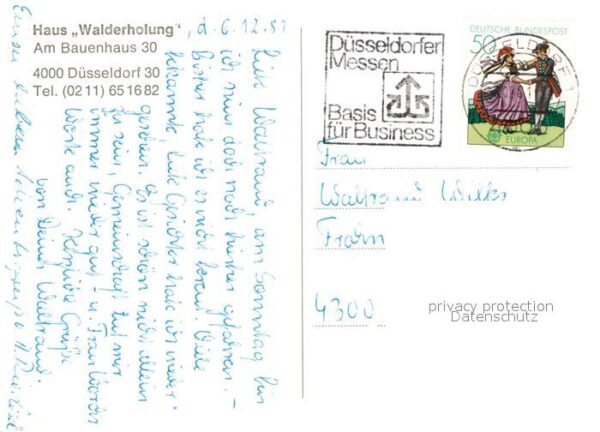 Haus „Walderholung"
Am Bauenhaus 30
4000 Düsseldorf 30
Tel. (0211) 651682
d. 6.12.81
Liebe Waltraud, am Sonntag bin
ich nun doch noch hierher gefahren. –
Bisher habe ich es nicht bereut. Viele
bekannte liebe Gesichter habe ich wieder
gesehen. Es ist schön nicht allein
zu sein, Gemeinschaft tut mir
immer wieder gut – u. Frau
auch. Herzliche Grüße
von Deiner Waltraud
Einen lieben
Düsseldorfer
Messen
Basis
für Business
DEUTSCHE BUNDESPOST
50
DÜSSELDORF 1
EUROPA
Frau
Waltraud Wilks
Frohn
4300
privacy protection
Datenschutz